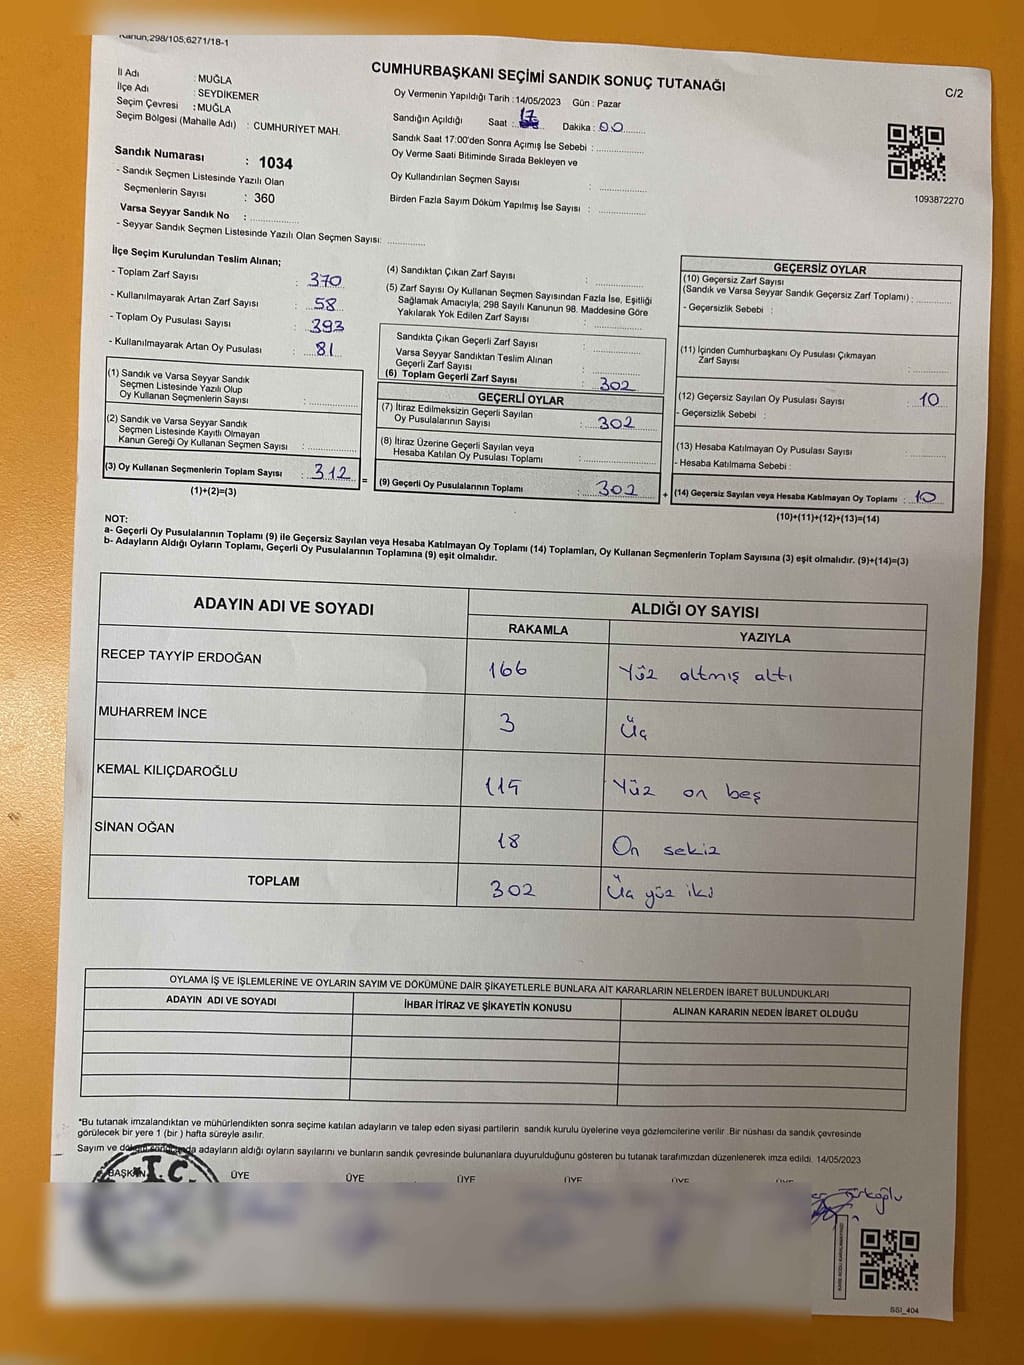 Kanun;298/105;6271/18-1
CUMHURBAŞKANI SEÇİMİ SANDIK SONUÇ TUTANAĞI
C/2
İl Adı : MUĞLA
İlçe Adı : SEYDİKEMER
Seçim Çevresi : MUĞLA
Seçim Bölgesi (Mahalle Adı) : CUMHURİYET MAH.
Sandık Numarası : 1034
- Sandık Seçmen Listesinde Yazılı Olan
Seçmenlerin Sayısı : 360
Varsa Seyyar Sandık No :
- Seyyar Sandık Seçmen Listesinde Yazılı Olan Seçmen Sayısı:
Oy Vermenin Yapıldığı Tarih : 14/05/2023 Gün : Pazar
Sandığın Açıldığı Saat : 17 Dakika : 00
Sandık Saat 17:00'den Sonra Açımış İse Sebebi :
Oy Verme Saati Bitiminde Sırada Bekleyen ve
Oy Kullandırılan Seçmen Sayısı :
Birden Fazla Sayım Döküm Yapılmış İse Sayısı :
1093872270
İlçe Seçim Kurulundan Teslim Alınan;
- Toplam Zarf Sayısı : 370
- Kullanılmayarak Artan Zarf Sayısı : 58
- Toplam Oy Pusulası Sayısı : 393
- Kullanılmayarak Artan Oy Pusulası : 81
(1) Sandık ve Varsa Seyyar Sandık
Seçmen Listesinde Yazılı Olup
Oy Kullanan Seçmenlerin Sayısı :
(2) Sandık ve Varsa Seyyar Sandık
Seçmen Listesinde Kayıtlı Olmayan
Kanun Gereği Oy Kullanan Seçmen Sayısı :
(3) Oy Kullanan Seçmenlerin Toplam Sayısı : 312 =
(1)+(2)=(3)
(4) Sandıktan Çıkan Zarf Sayısı :
(5) Zarf Sayısı Oy Kullanan Seçmen Sayısından Fazla İse, Eşitliği
Sağlamak Amacıyla; 298 Sayılı Kanunun 98. Maddesine Göre
Yakılarak Yok Edilen Zarf Sayısı :
Sandıkta Çıkan Geçerli Zarf Sayısı :
Varsa Seyyar Sandıktan Teslim Alınan
Geçerli Zarf Sayısı :
(6) Toplam Geçerli Zarf Sayısı : 302
GEÇERLİ OYLAR
(7) İtiraz Edilmeksizin Geçerli Sayılan
Oy Pusulalarının Sayısı : 302
(8) İtiraz Üzerine Geçerli Sayılan veya
Hesaba Katılan Oy Pusulası Toplamı :
(9) Geçerli Oy Pusulalarının Toplamı : 302 +
GEÇERSİZ OYLAR
(10) Geçersiz Zarf Sayısı
(Sandık ve Varsa Seyyar Sandık Geçersiz Zarf Toplamı) :
- Geçersizlik Sebebi :
(11) İçinden Cumhurbaşkanı Oy Pusulası Çıkmayan
Zarf Sayısı :
(12) Geçersiz Sayılan Oy Pusulası Sayısı : 10
- Geçersizlik Sebebi :
(13) Hesaba Katılmayan Oy Pusulası Sayısı :
- Hesaba Katılmama Sebebi :
(14) Geçersiz Sayılan veya Hesaba Katılmayan Oy Toplamı : 10
(10)+(11)+(12)+(13)=(14)
NOT:
a- Geçerli Oy Pusulalarının Toplamı (9) ile Geçersiz Sayılan veya Hesaba Katılmayan Oy Toplamı (14) Toplamları, Oy Kullanan Seçmenlerin Toplam Sayısına (3) eşit olmalıdır. (9)+(14)=(3)
b- Adayların Aldığı Oyların Toplamı, Geçerli Oy Pusulalarının Toplamına (9) eşit olmalıdır.
ADAYIN ADI VE SOYADI ALDIĞI OY SAYISI
RAKAMLA YAZIYLA
RECEP TAYYİP ERDOĞAN 166 Yüz altmış altı
MUHARREM İNCE 3 Üç
KEMAL KILIÇDAROĞLU 115 Yüz on beş
SİNAN OĞAN 18 On sekiz
TOPLAM 302 Üç yüz iki
OYLAMA İŞ VE İŞLEMLERİNE VE OYLARIN SAYIM VE DÖKÜMÜNE DAİR ŞİKAYETLERLE BUNLARA AİT KARARLARIN NELERDEN İBARET BULUNDUKLARI
ADAYIN ADI VE SOYADI İHBAR İTİRAZ VE ŞİKAYETİN KONUSU ALINAN KARARIN NEDEN İBARET OLDUĞU
*Bu tutanak imzalandıktan ve mühürlendikten sonra seçime katılan adayların ve talep eden siyasi partilerin sandık kurulu üyelerine veya gözlemcilerine verilir .Bir nüshası da sandık çevresinde
görülecek bir yere 1 (bir ) hafta süreyle asılır.
Sayım ve döküm sonucunda adayların aldığı oyların sayılarını ve bunların sandık çevresinde bulunanlara duyurulduğunu gösteren bu tutanak tarafımızdan düzenlenerek imza edildi. 14/05/2023
BAŞKAN ÜYE ÜYE ÜYE ÜYE ÜYE ÜYE
T.C.
Türkoğlu
SSI_404